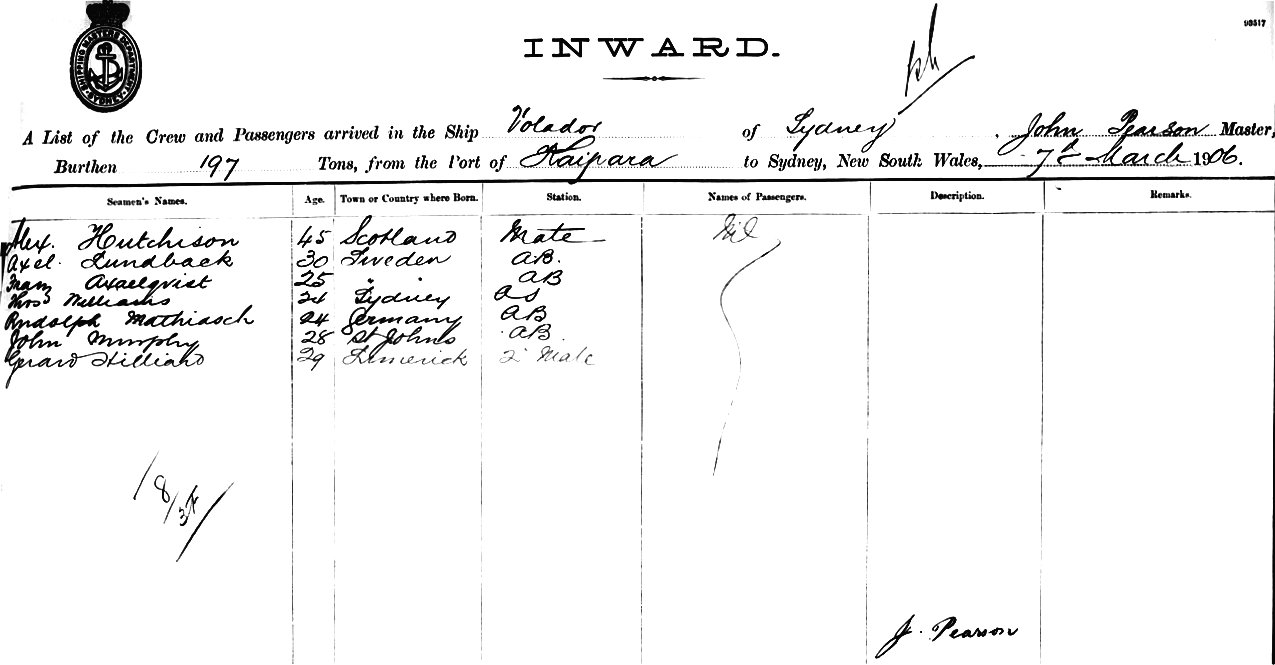 98517
SHIPPING MASTERS DEPARTMENT SYDNEY
INWARD.
A List of the Crew and Passengers arrived in the Ship Volador of Sydney. John Pearson Master,
Burthen 197 Tons, from the Port of Kaipara to Sydney, New South Wales, 7th March 1906.
Seamen's Names. Age. Town or Country where Born. Station. Names of Passengers. Description. Remarks.
Alex. Hutchison 45 Scotland Mate Nil
Axel. Lundback 30 Sweden AB.
Axaelqvist 25 " " AB
Thos Williams Sydney OS
Rudolph Mathiasch 24 Germany AB
John Murphy 28 St Johns AB.
Gerard Hilliard 29 Limerick 2 Mate
8/3
J. Pearson